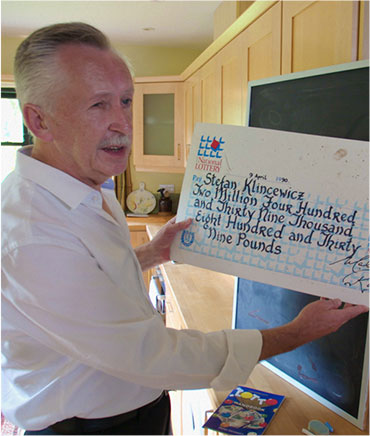 National
LOTTERY
9 April 1990
Pay Stefan Klincewicz
Two Million Four Hundred
and Thirty Nine Thousand
Eight Hundred and Thirty
Nine Pounds